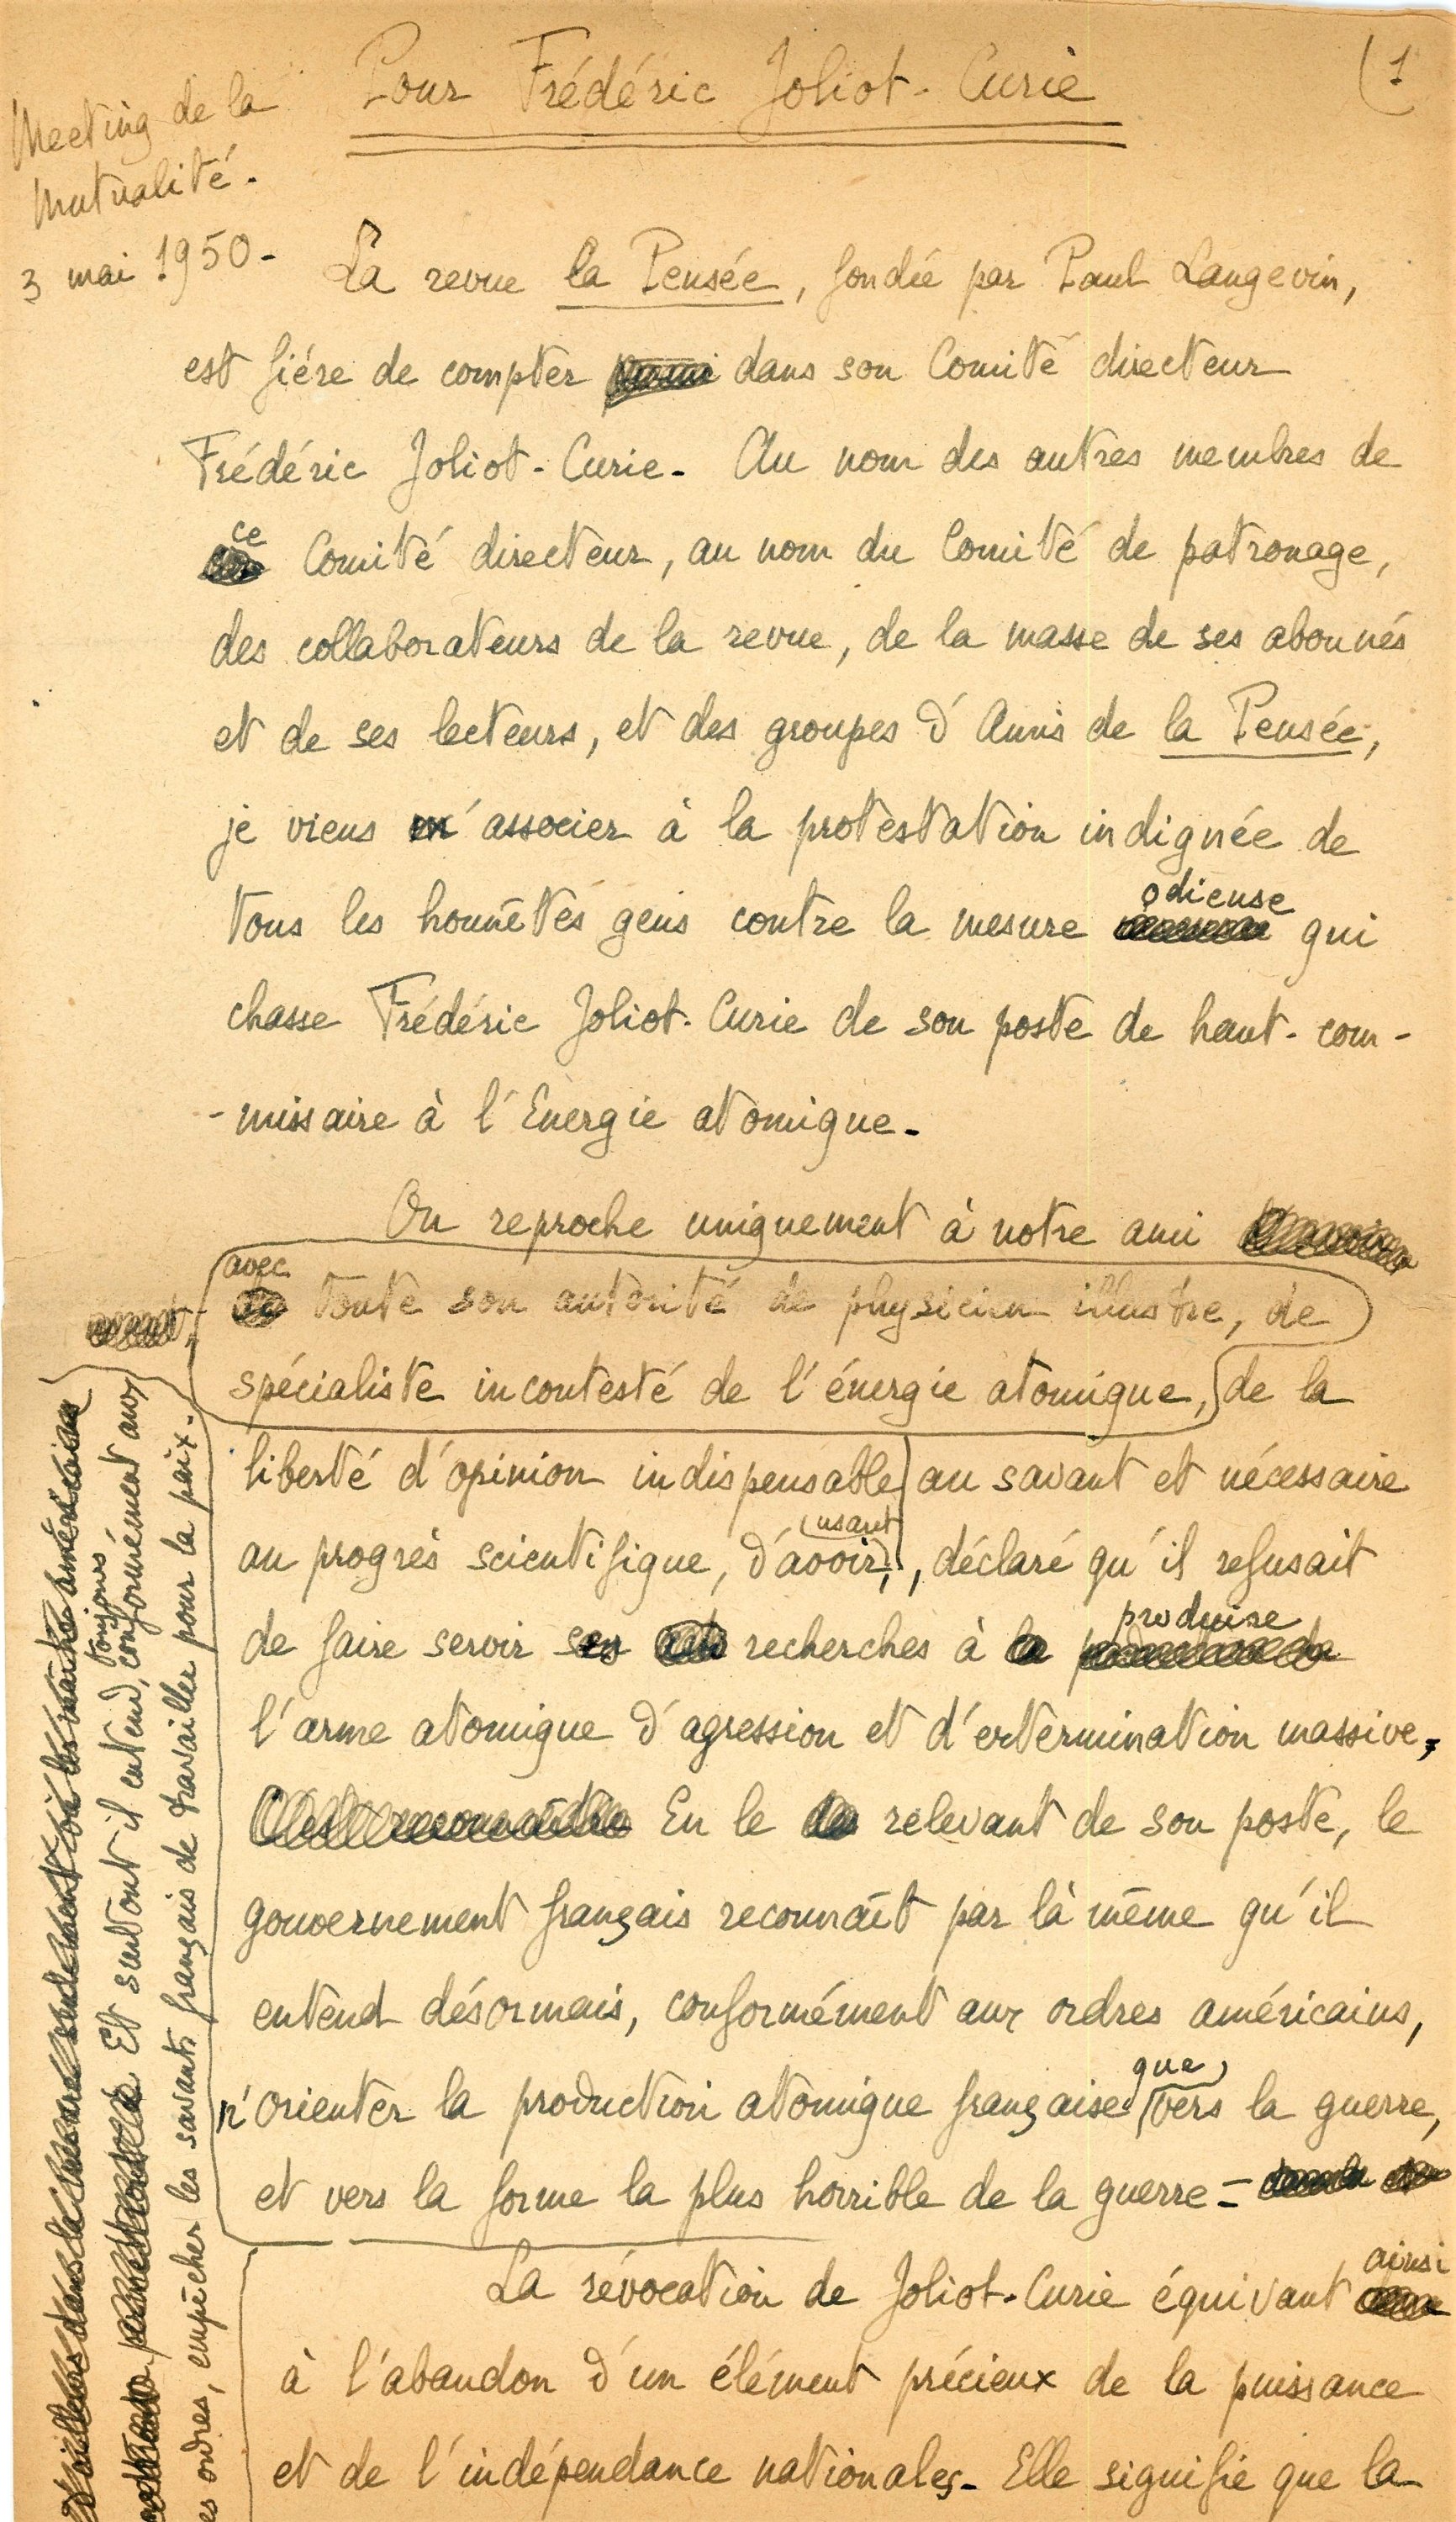 (1
Pour Frédéric Joliot-Curie
Meeting de la
Mutualité.
3 mai 1950-
La revue la Pensée, fondée par Paul Langevin,
est fière de compter dans son Comité directeur
Frédéric Joliot-Curie. Au nom des autres membres de
ce
Comité directeur, au nom du Comité de patronage,
des collaborateurs de la revue, de la masse de ses abonnés
et de ses lecteurs, et des groupes d'Amis de la Pensée,
je viens m'associer à la protestation indignée de
odieuse
tous les honnêtes gens contre la mesure qui
chasse Frédéric Joliot-Curie de son poste de haut-com-
-missaire à l'Energie atomique.
On reproche uniquement à notre ami
avec
toute son autorité de physicien illustre, de
spécialiste incontesté de l'énergie atomique, de la
liberté d'opinion indispensable au savant et nécessaire
usant
au progrès scientifique, d'avoir, , déclaré qu'il refusait
produire
de faire servir ses recherches à
l'arme atomique d'agression et d'extermination massive.
En le relevant de son poste, le
gouvernement français reconnaît par là même qu'il
entend désormais, conformément aux ordres américains,
que
n'orienter la production atomique française vers la guerre,
et vers la forme la plus horrible de la guerre-
ainsi
La révocation de Joliot-Curie équivaut
à l'abandon d'un élément précieux de la puissance
et de l'indépendance nationales. Elle signifie que la
toujours
Et surtout il entend, conformément aux
es ordres, empêcher les savants français de travailler pour la paix.